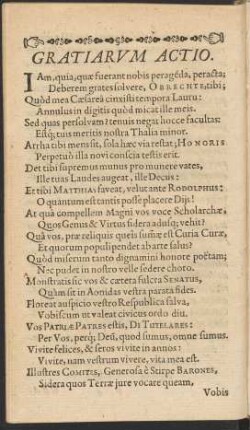 GRATIARVM ACTIO.
IAm, quia, quæ fuerant nobis peragẽda, peracta;
Deberem grates solvere, OBRECHTE, tibi;
Quòd mea Cæsareâ cinxisti tempora Lauru:
Annulus in digitis quòd micat ille meis.
Sed quas persolvam? tenuis negat hocce facultas:
Estq́; tuis meritis nostra Thalia minor.
Arrha tibi mens sit, sola hæc via restat; HONORIS
Perpetuò illa novi conscia testis erit.
Det tibi supremus munus pro munere vates,
Ille tuas Laudes augeat, ille Decus:
Et tibi MATTHIAS faveat, velut ante RODOLPHUS:
O quantum est tantis posse placere Dijs!
At quâ compellem Magni vos voce Scholarchæ,
Quos Genus & Virtus sidera adusq; vehit?
Quâ vos, præ reliquis queîs summæ est Curia Curæ,
Et quorum populi pendet ab arte salus?
Quòd miserum tanto dignamini honore poëtam;
Nec pudet in nostro velle sedere choro.
Monstratis sic vos & cætera fulcra SENATUS,
Quàm sit in Aonidas vestra parata fides.
Floreat auspicio vestro Respublica salva,
Vobiscum ut valeat civicus ordo diu.
VOS PATRIÆ PATRES estis, DI TUTELARES:
Per Vos, perq́; Deũ, quod sumus, omne sumus.
Vivite felices, & seros vivite in annos:
Vivite, nam vestrum vivere, vita mea est.
Illustres COMITES, Generosa è Stirpe BARONES,
Sidera quos Terræ jure vocare queam,
Vobis